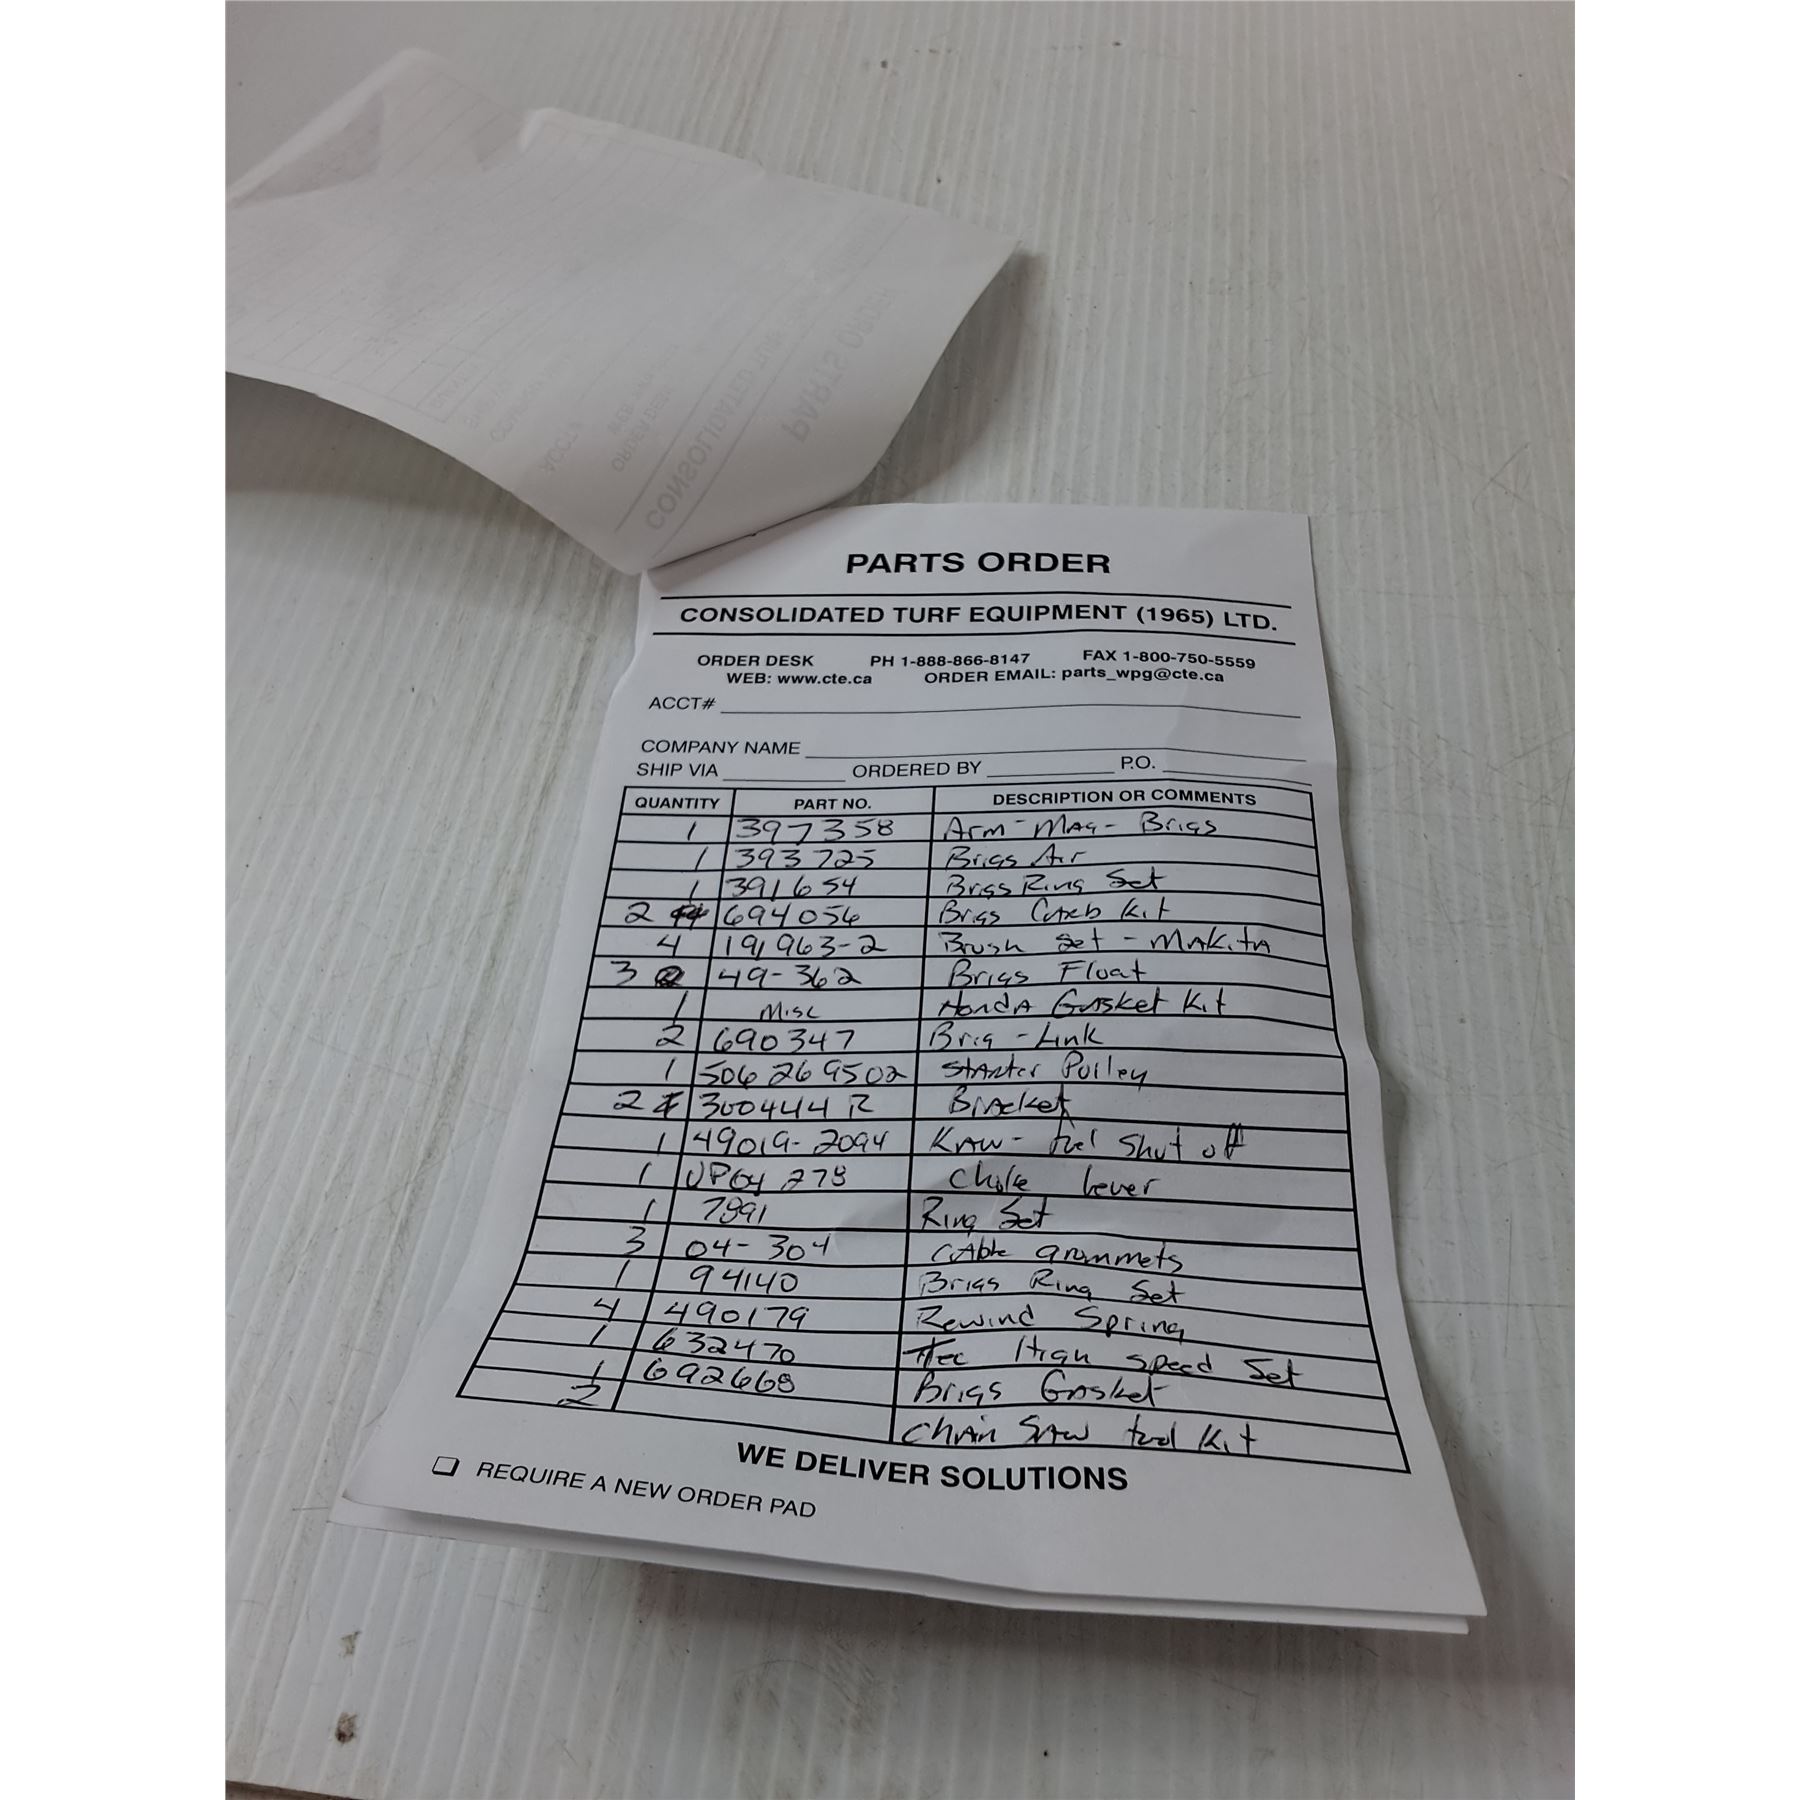 PARTS ORDER
CONSOLIDATED TURF EQUIPMENT (1965) LTD.
ORDER DESK PH 1-888-866-8147 FAX 1-800-750-5559
WEB: www.cte.ca ORDER EMAIL: parts_wpg@cte.ca
ACCT#
COMPANY NAME
SHIP VIA ORDERED BY P.O.
QUANTITY PART NO. DESCRIPTION OR COMMENTS
1 397358 Arm-Mag-Brigs
1 393725 Brigs Air
1 391654 Brigs Ring Set
2 694056 Brigs Carb Kit
4 191963-2 Brush Set - Makita
3 49-362 Brigs Float
1 Misc Honda Gasket Kit
2 690347 Brig-Link
1 506269502 Starter Pulley
2 300444R Bracket
1 49019-2094 Kaw- fuel Shut off
1 278 Choke Lever
1 7891 Ring Set
3 04-304 Cable grommets
1 94140 Brigs Ring Set
4 490179 Rewind Spring
1 632470 Tec High Speed Set
1 692668 Brigs Gasket
2 Chain Saw fuel Kit
WE DELIVER SOLUTIONS
REQUIRE A NEW ORDER PAD